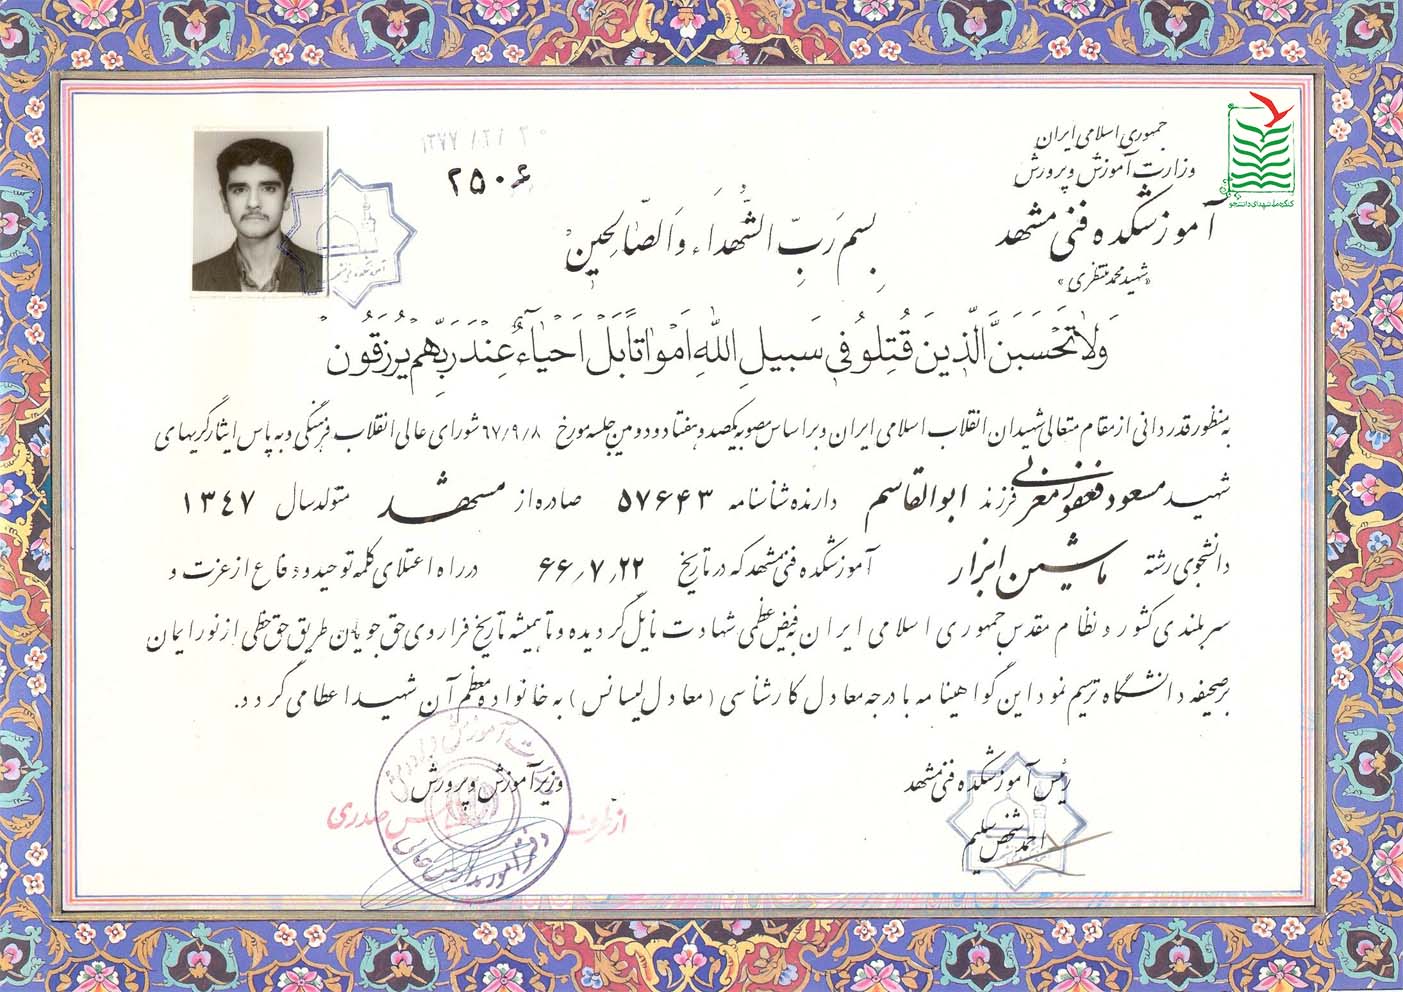 جمهوری اسلامی ایران
وزارت آموزش و پرورش
آموزشکده فنی مشهد
«شهید محمد منتظری»
کنگره ملی شهدای دانشجو
۱۳۷۷
۲۵۰۶
بِسمِ رَبِّ الشُّهَداءِ وَالصّالِحین
وَلا تَحْسَبَنَّ الَّذینَ قُتِلوُ فی سَبیلِ اللهِ اَمْواتاً بَلْ اَحْیاءٌ عِنْدَ رَبِّهِمْ یُرْزَقُون
به منظور قدردانی از مقام متعالی شهیدان انقلاب اسلامی ایران و بر اساس مصوبه یکصد و هفتاد و دومین جلسه مورخ ۶۷/۹/۸ شورای عالی انقلاب فرهنگی و به پاس ایثارگریهای
شهید مسعود فغفور مغربی فرزند ابوالقاسم دارنده شناسنامه ۵۷۶۴۳ صادره از مشهد متولد سال ۱۳۴۷
دانشجوی رشته ماشین ابزار آموزشکده فنی مشهد که در تاریخ ۶۶/۷/۲۲ در راه اعتلای کلمه توحید و دفاع از عزت و
سربلندی کشور و نظام مقدس جمهوری اسلامی ایران به فیض عظمی شهادت نایل گردیده و تا همیشه تاریخ فراروی حق جویان طریق حق خطی از نور ایمان
بر صحیفه دانشگاه ترسیم نمود این گواهینامه با درجه معادل کارشناسی (معادل لیسانس) به خانواده معظم آن شهید اعطا می گردد.
رئیس آموزشکده فنی مشهد
احمد شخص سلیم
وزیر آموزش و پرورش
از طرف صدری